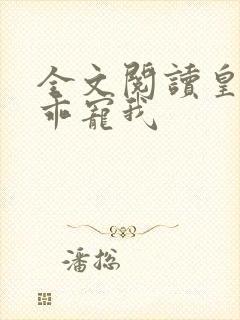 全文閱讀皇
乖寵我
潘総